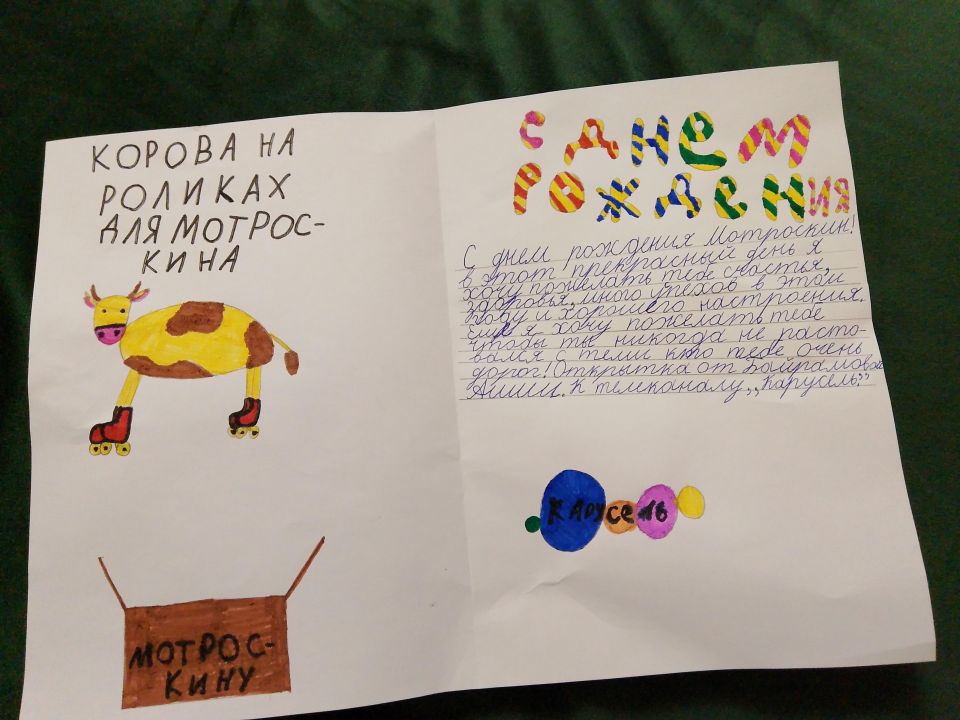 КОРОВА НА
РОЛИКАХ
ДЛЯ МОТРОС-
КИНА
МОТРОС-
КИНУ
С ДНЕМ
РОЖДЕНИЯ
С днем рождения Мотроскин!
в этот прекрасный день я
хочу пожелать тебе счастья,
здоровья, много успехов в этом
году и хорошего настроения.
Еще я хочу пожелать тебе
чтобы ты никогда не расто-
вался с теми кто тебе очень
дорог! Открытка от Байрамовой
к телеканалу „Карусель"
КАРУСЕЛЬ